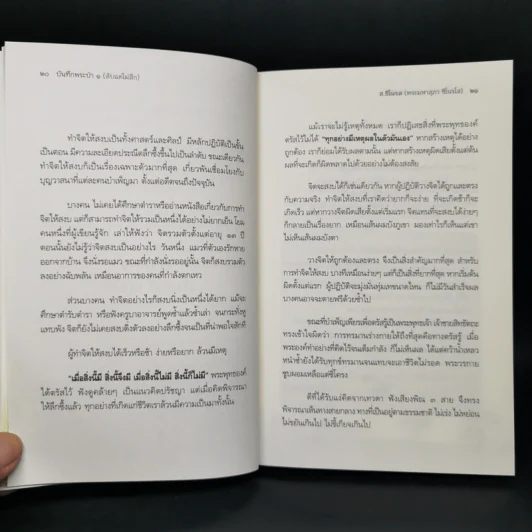 ๒๐ บันทึกพระป่า ๑ (ลับแลไม่ลึก)
ทำจิตให้สงบเป็นทั้งศาสตร์และศิลป์ มีหลักปฏิบัติเป็นขั้น
เป็นตอน มีความละเอียดประณีตลึกซึ้งขึ้นไปเป็นลำดับ ขณะเดียวกัน
ทำจิตให้สงบก็เป็นเรื่องเฉพาะตัวมากที่สุด เกี่ยวพันเชื่อมโยงกับ
บุญวาสนาที่แต่ละคนบำเพ็ญมา ตั้งแต่อดีตจนถึงปัจจุบัน
บางคน ไม่เคยได้ศึกษาตำราหรืออ่านหนังสือเกี่ยวกับการทำ
จิตให้สงบ แต่ก็สามารถทำจิตให้รวมเป็นหนึ่งได้อย่างไม่ยากเย็น โยม
คนหนึ่งที่ผู้เขียนรู้จัก เล่าให้ฟังว่า จิตรวมตั้งแต่อายุ ๑๓ ปี
ตอนนั้นยังไม่รู้ว่าจิตสงบเป็นอย่างไร วันหนึ่ง แมวที่ตัวเองรักหาย
ออกจากบ้าน จึงนั่งรอแมว ขณะที่กำลังนั่งรออยู่นั้น จิตก็สงบรวมตัว
ลงอย่างฉับพลัน เหมือนอาการของคนที่กำลังตกเหว
ส่วนบางคน ทำจิตอย่างไรก็สงบนิ่งเป็นหนึ่งได้ยาก แม้จะ
ศึกษาตำรับตำรา หรือฟังครูบาอาจารย์พูดซ้ำแล้วซ้ำเล่า จนกระทั่งหู
แทบพัง จิตก็ยังไม่เคยสงบดิ่งตัวลงอย่างลึกซึ้งจนเป็นที่น่าพอใจสักที
ผู้ทำจิตให้สงบได้เร็วหรือช้า ง่ายหรือยาก ล้วนมีเหตุ
"เมื่อสิ่งนี้มี สิ่งนี้จึงมี เมื่อสิ่งนี้ไม่มี สิ่งนี้ก็ไม่มี" พระพุทธองค์
ได้ตรัสไว้ ฟังดูคล้ายๆ เป็นแนวคิดปรัชญา แต่เมื่อคิดพิจารณา
ให้ลึกซึ้งแล้ว ทุกอย่างที่เกิดแก่ชีวิตเราล้วนมีความเป็นมาทั้งนั้น
ส.ชิโนรส (พระมหาสุภา ชิโนรโส) ๒๑
แม้เราจะไม่รู้เหตุทั้งหมด เราก็ปฏิเสธสิ่งที่พระพุทธองค์
ตรัสไว้ไม่ได้ "ทุกอย่างมีเหตุผลในตัวมันเอง" หากสร้างเหตุได้อย่าง
ถูกต้อง เราก็ย่อมได้รับผลตามนั้น แต่หากสร้างเหตุผิดเสียตั้งแต่ต้น
ผลที่จะเกิดก็ผิดพลาดไปด้วยอย่างไม่ต้องสงสัย
จิตจะสงบได้ก็เช่นเดียวกัน หากผู้ปฏิบัติวางจิตได้ถูกและตรง
กับความจริง ทำจิตให้สงบที่เราคิดว่ายากก็จะง่าย ที่จะเกิดช้าก็จะ
เกิดเร็ว แต่หากวางจิตผิดเสียตั้งแต่เริ่มแรก จิตแทนที่จะสงบได้ง่ายๆ
ก็กลายเป็นเรื่องยาก เหมือนเส้นผมบังภูเขา มองเท่าไรก็เห็นแต่เขา
ไม่เห็นเส้นผมบังตา
วางจิตให้ถูกต้องและตรงไว้ จึงเป็นสิ่งสำคัญมากที่สุด สำหรับ
การทำจิตให้สงบ บางทีเหมือนง่ายๆ แต่ก็เป็นสิ่งที่ยากที่สุด หากเริ่มต้น
ผิดตั้งแต่แรก ผู้ปฏิบัติจะมุ่งมั่นทุ่มเทขนาดไหน ก็ไม่มีวันสำเร็จผล
บางคนอาจจะตายฟรีด้วยซ้ำไป
ขณะที่บำเพ็ญเพียรเพื่อตรัสรู้เป็นพระพุทธเจ้า เจ้าชายสิทธัตถะ
ทรงเข้าใจผิดว่า การทรมานร่างกายให้ถึงที่สุดคือทางตรัสรู้ เมื่อ
พระองค์ทำอย่างที่คิดไว้จนเต็มกำลัง ก็ไม่เห็นผล ได้แต่คว้าน้ำเหลว
หนำซ้ำยังได้รับทุกข์ทรมานจนแทบจะเอาชีวิตไม่รอด พระวรกาย
ซูบผอมเหลือแต่ซี่โครง
ดีที่ได้รับแง่คิดจากเทวดา ฟังเสียงพิณ ๓ สาย จึงทรง
พิจารณาเห็นทางสายกลาง ทางที่เป็นอยู่ตามธรรมชาติ ไม่เร่ง ไม่หย่อน
ไม่ขยันเกินไป ไม่ขี้เกียจเกินไป